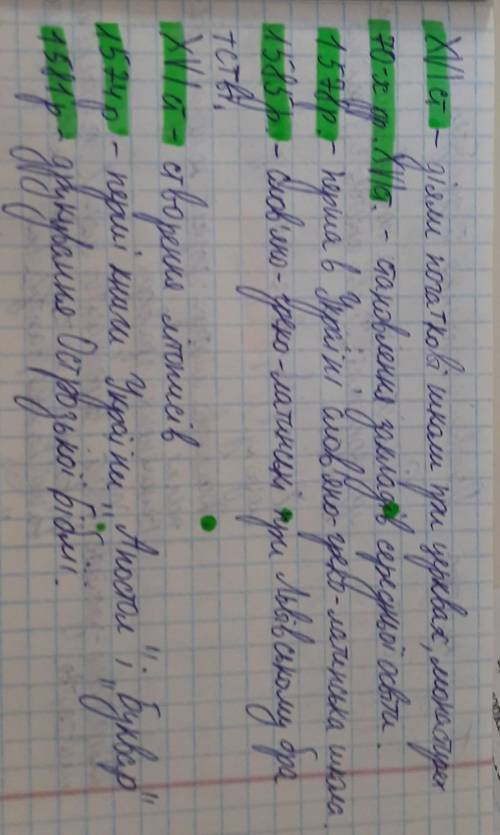 XVI ст. - діяли початкові школи при церквах, монастирях
70-х рр. XVI ст. - становлення закладів середньої освіти.
1578р. - перша в Україні слов'яно-греко-латинська школа.
1585р. - слов'яно-греко-латинські при Львівському бра
тстві.
XVI ст - створення літописів
1574р - перші книги України „Апостол", „Буквар"
1581р - друкування Острозької Біблії.